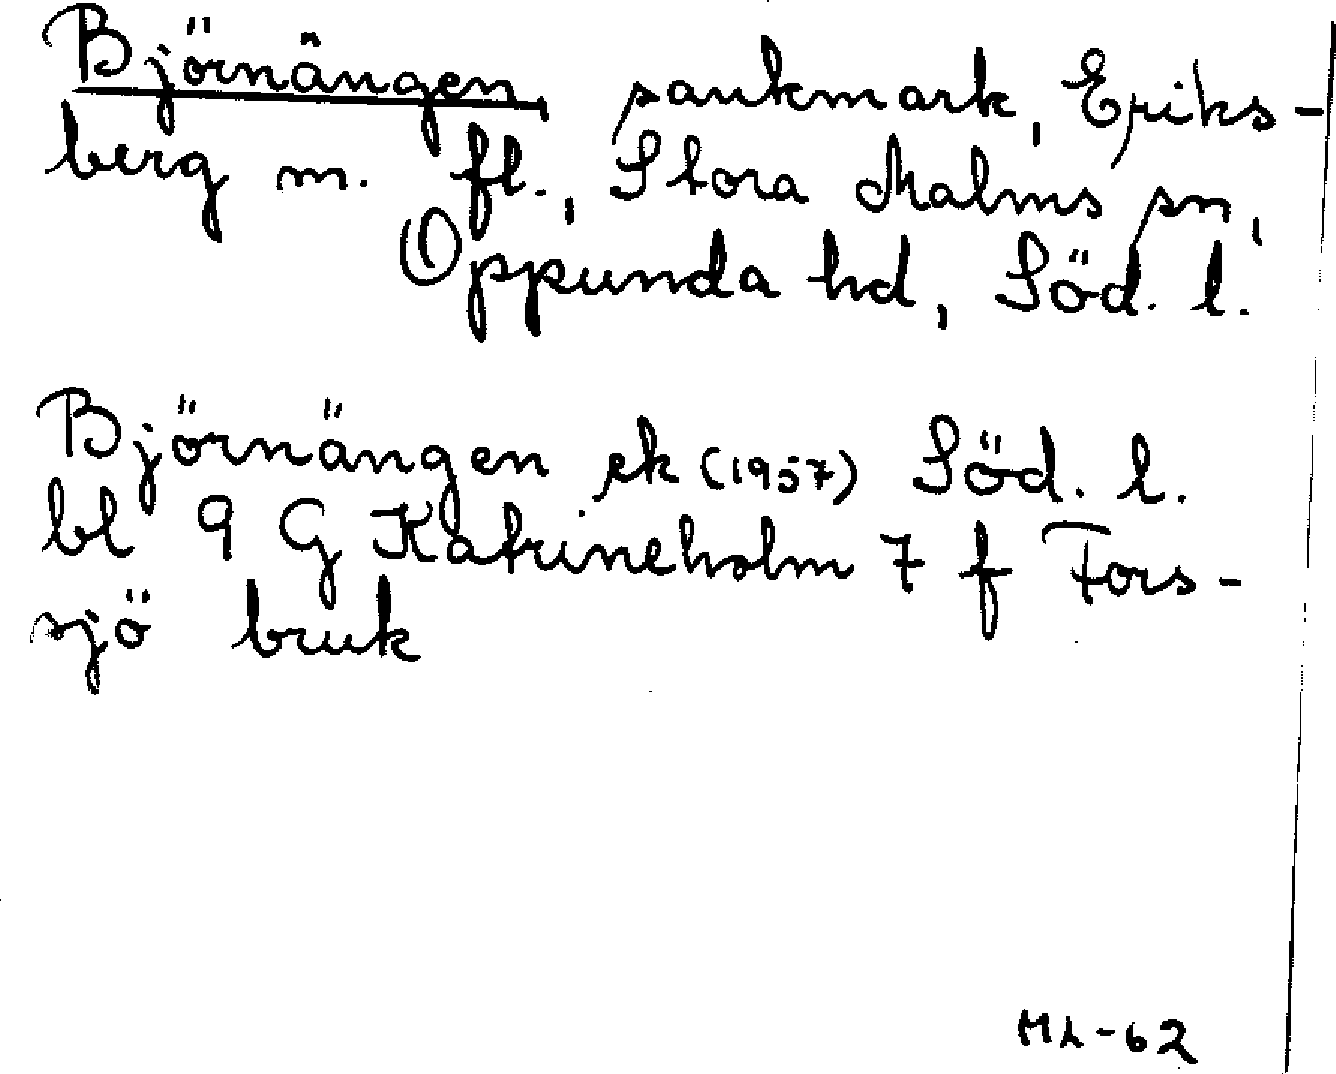 Björnängen, sankmark, Eriks-
berg m. fl., Stora Malms sn,
Oppunda hd, Söd. l.
Björnängen ek (1957) Söd. l.
bl 9 G Katrineholm 7 f Fors-
sjö bruk
ML-62